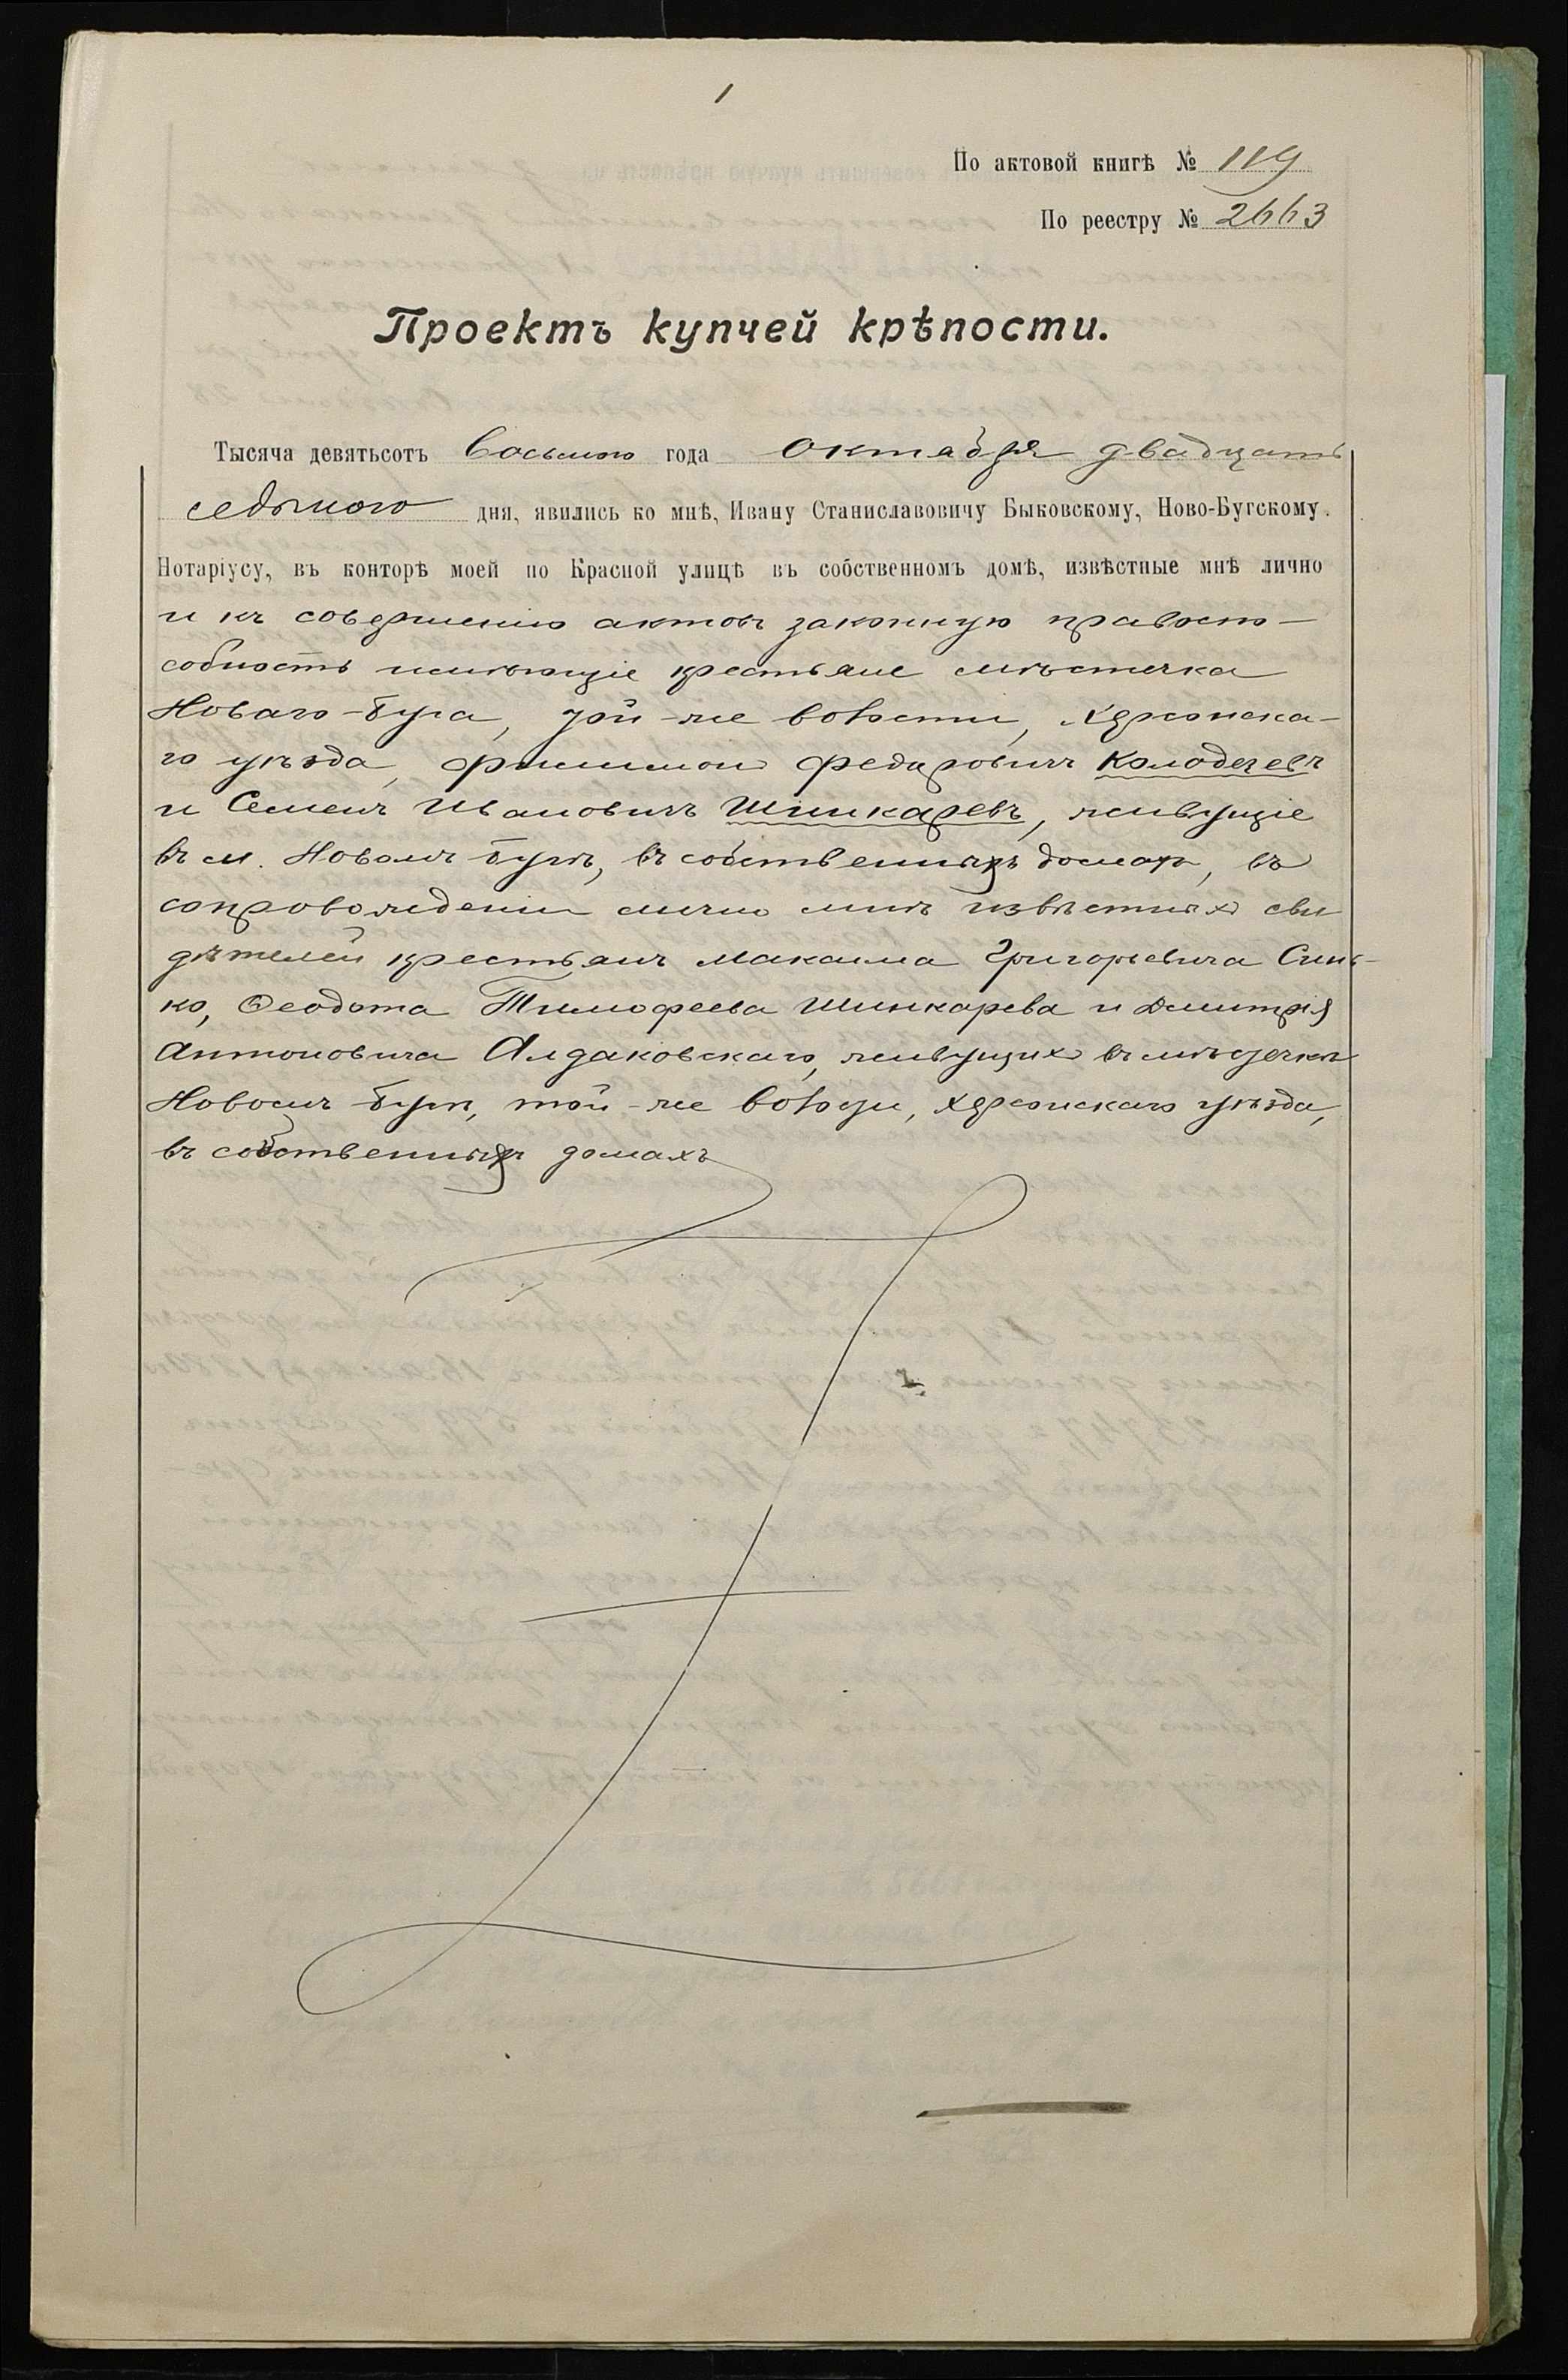 1
По актовой книгѣ № 119
По реестру № 2663
Проектъ купчей крѣпости.
Тысяча девятьсотъ восьмого года октября двадцать
седьмого дня, явились ко мнѣ, Ивану Станиславовичу Быковскому, Ново-Бугскому
Нотаріусу, въ конторѣ моей по Красной улицѣ въ собственномъ домѣ, извѣстные мнѣ лично
и къ совершенію актовъ законную правоспо-
собность имѣющіе крестьяне мѣстечка
Новаго-Буга, той-же волости, Херсонска-
го уѣзда, Филимон Федоровичъ Колодезевъ
и Семенъ Ивановичъ Шинкаревъ, живущіе
въ м. Новомъ Бугѣ, въ собственныхъ домахъ, въ
сопровожденіи лично мнѣ извѣстныхъ сви
дѣтелей крестьянъ Максима Григорьевича Синь-
ко, Ѳеодота Тимофеева Шинкарева и Дмитрія
Антоновича Алдаковскаго, живущихъ въ мѣстечкѣ
Новомъ-Бугѣ, той-же волости, Херсонскаго уѣзда,
въ собственныхъ домахъ